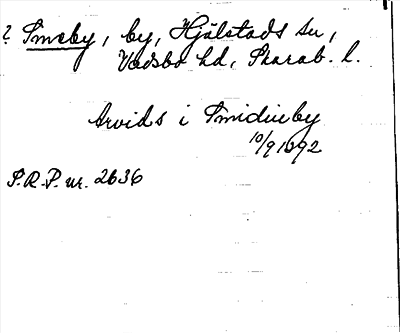 ? Smeby, by, Hjälstads sn,
Vadsbo hd, Skarab. l.
Arvids i Smidiueby
10/9 1692
S.R.P. nr. 2636